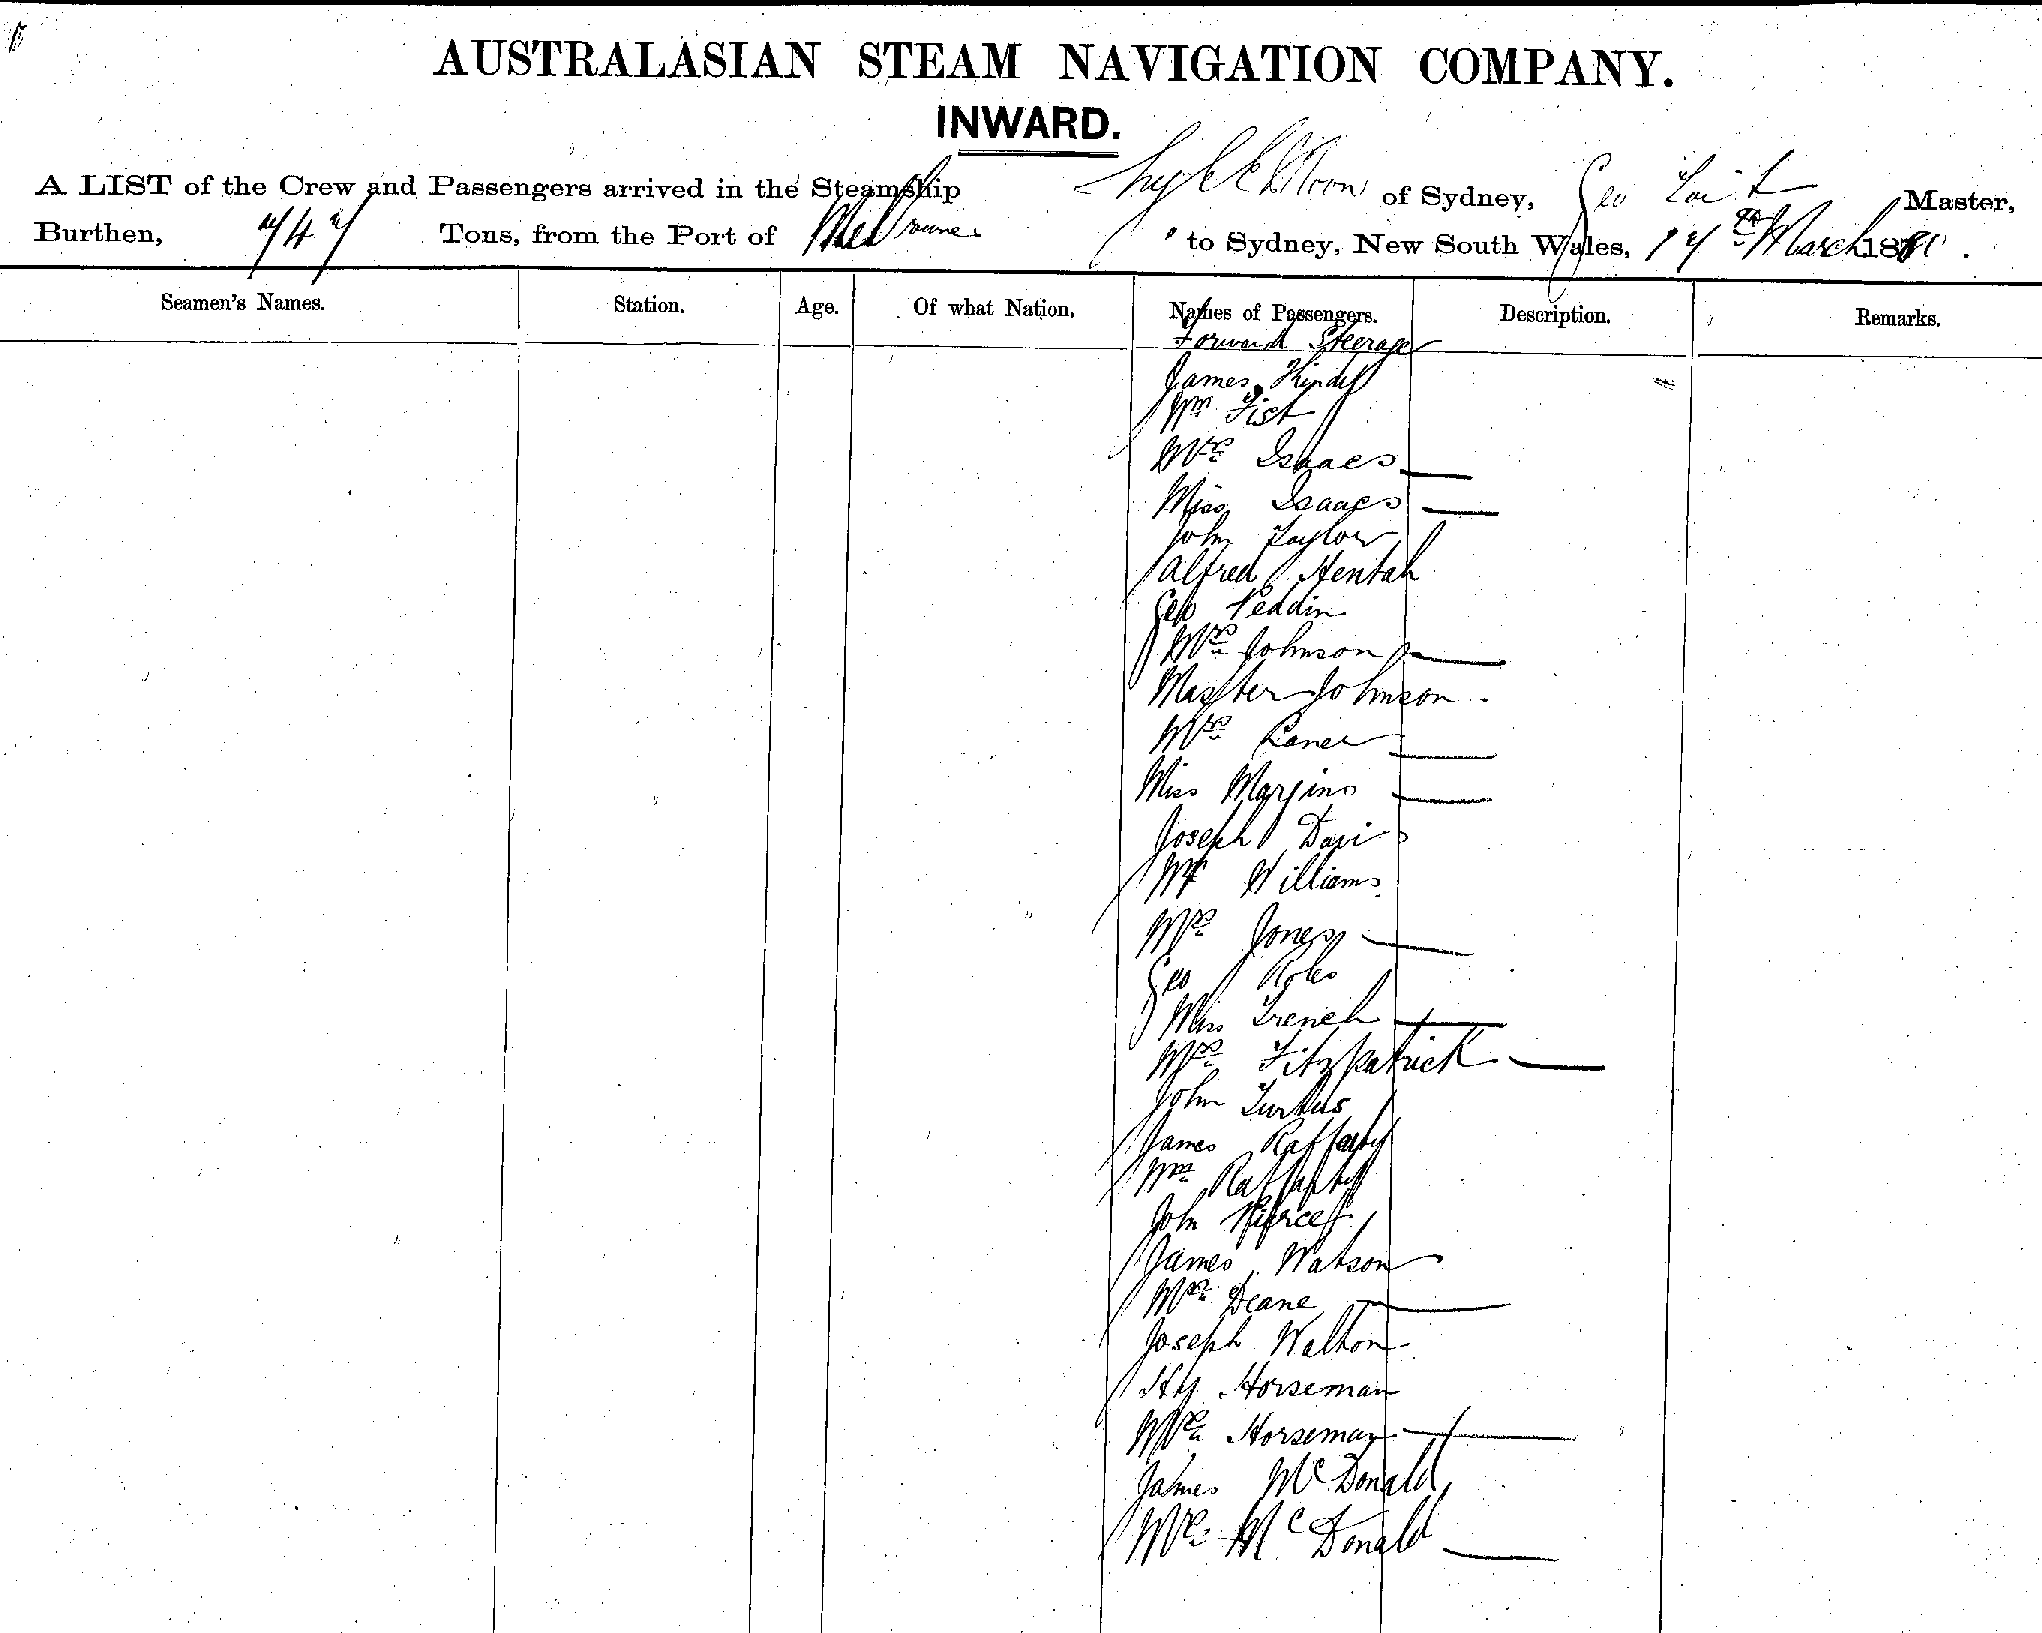 AUSTRALASIAN STEAM NAVIGATION COMPANY.
INWARD.
A LIST of the Crew and Passengers arrived in the Steamship of Sydney, Geo Master,
Burthen, 747 Tons, from the Port of Melbourne to Sydney, New South Wales, 17th March 18
Seamen's Names. Station. Age. Of what Nation. Names of Passengers. Description. Remarks.
Forward Steerage
James
Wm Fist
Mrs Isaacs
Miss Isaacs
John Taylor
Alfred Hentah
Geo Peddin
Mrs Johnson
Master Johnson
Mrs
Miss
Joseph Davis
Mr Williams
Mrs Jones
Geo
Miss French
Mrs Fitzpatrick
John
James Rafferty
Wm Rafferty
John Pierce
James Watson
Mrs Deane
Joseph Walton
Hy Horseman
Mrs Horseman
James McDonald
Mrs McDonald